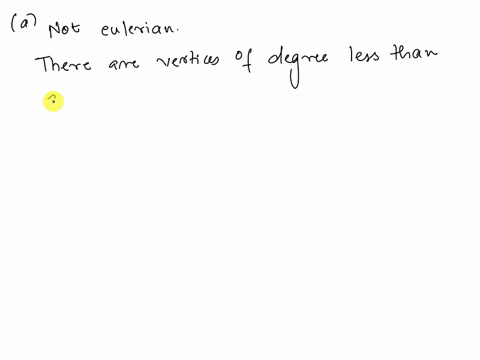 (a) Not eulerian.
There are vertices of degree less than